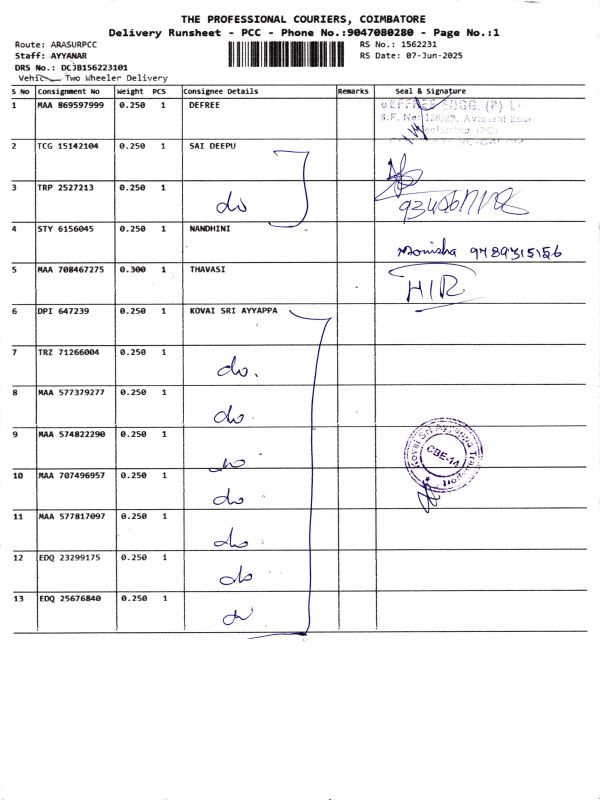 THE PROFESSIONAL COURIERS, COIMBATORE
Delivery Runsheet - PCC - Phone No.:9047080280 - Page No.:1
Route: ARASURPCC RS No.: 1562231
Staff: AYYANAR RS Date: 07-Jun-2025
DRS No.: DCJB156223101
Vehicle Two Wheeler Delivery
S No Consignment No Weight PCS Consignee Details Remarks Seal & Signature
1 MAA 869597999 0.250 1 DEFREE
DEFREE ENGG. (P) L
S.F. No: 126/2B, Avinashi Road
2 TCG 15142104 0.250 1 SAI DEEPU
3 TRP 2527213 0.250 1 do
4 STY 6156045 0.250 1 NANDHINI
Monisha 9789315156
5 MAA 708467275 0.300 1 THAVASI HIR
6 DPI 647239 0.250 1 KOVAI SRI AYYAPPA
7 TRZ 71266004 0.250 1 do.
8 MAA 577379277 0.250 1 do.
9 MAA 574822290 0.250 1 do
Kovai Sri Ayyappa Transport
CBE-14
10 MAA 707496957 0.250 1 do
11 MAA 577817097 0.250 1 do
12 EDQ 23299175 0.250 1 do
13 EDQ 25676840 0.250 1 do